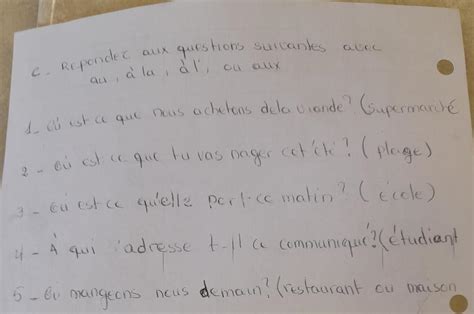 C - Répondez aux questions suivantes avec
au, à la, à l', ou aux
1 - où est ce que nous achetons de la viande? (supermarché
2 - où est-ce que tu vas nager cet été? (plage)
3 - où est ce qu'elle part-ce matin? (école)
4 - À qui adresse t-il ce communiqué? (étudiant
5 - où mangeons nous demain? (restaurant ou maison